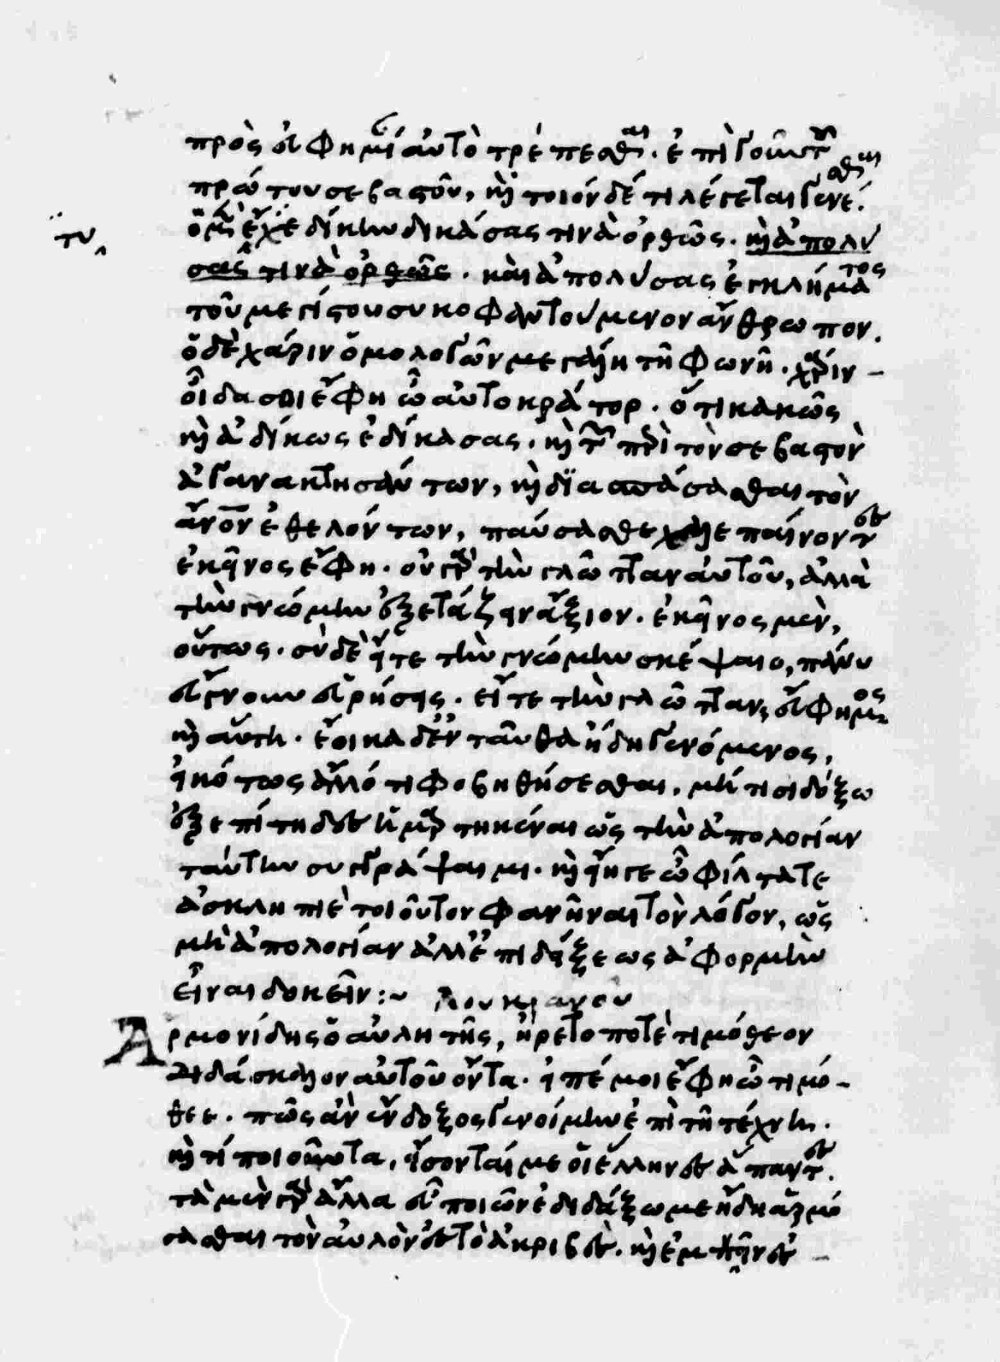 πρὸς εὐφημίαν αὐτὸ τρέπεσθαι. ἐπὶ γοῦν τοῦ
πρώτου σεβαστοῦ, καὶ τοιόνδέ τι λέγεται γενέσθαι.
ὁ μὲν ἔτυχε δίκην δικάσας τινὰ ὀρθῶς. καὶ ἀπολύ
σας τινὰ ὀρθῶς. καὶ ἀπολύσας ἐγκλήματος
τοῦ μεγίστου συκοφαντούμενον ἄνθρωπον.
ὁ δὲ χάριν ὁμολογῶν μεγάλη τῆ φωνῆ. χάριν
οἶδά σοι ἔφη ὦ αὐτοκράτορ. ὅτι κακῶς
καὶ ἀδίκως ἐδίκασας. καὶ τῶν περὶ τὸν σεβαστὸν
ἀγανακτησάντων, καὶ διασπάσασθαι τὸν
ἄνον ἐθελόντων, παύσασθε χαλεπαίνοντες
ἐκεῖνος ἔφη. οὐ γὰρ τὴν γλῶτταν αὐτοῦ, ἀλλὰ
τὴν γνώμην ἐξετάζειν ἄξιον. ἐκεῖνος μὲν,
οὕτως. σὺ δὲ εἴτε τὴν γνώμην σκέψαιο, πάνυ
εὔνουν εὑρήσεις. εἴτε τὴν γλῶτταν, εὔφημος
καὶ αὕτη. ἔοικα δ' ἐνταῦθα ἤδη γενόμενος,
εἰκότως ἄλλό τι φοβηθήσεσθαι. μή τισι δόξω
ἐξεπίτηδες ἡμαρτηκέναι ὡς τὴν ἀπολογίαν
ταύτην συγγράψαιμι. καὶ εἴη γε ὦ φίλτατε
ἀσκληπιὲ τοιοῦτον φανῆναι τὸν λόγον, ὡς
μὴ ἀπολογίαν ἀλλ' ἐπιδείξεως ἀφορμὴν
εἶναι δοκεῖν:~ Λουκιανοῦ
Ἁρμονίδης ὁ αὐλητὴς, ἤρετό ποτε τιμόθεον
διδάσκαλον αὐτοῦ ὄντα. εἰπέ μοι ἔφη ὦ τιμό-
θεε. πῶς ἂν ἔνδοξος γενοίμην ἐπὶ τῆ τέχνη.
καὶ τί ποιοῦντα, εἴσονταί με οἱ ἕλληνες ἅπαντες.
τὰ μὲν γὰρ ἄλλα εὖ ποιῶν ἐδιδάξω με ἤδη ἁρμό
σασθαι τὸν αὐλὸν ἐς τὸ ἀκριβὲς. καὶ ἐμπνεῖν ἐς